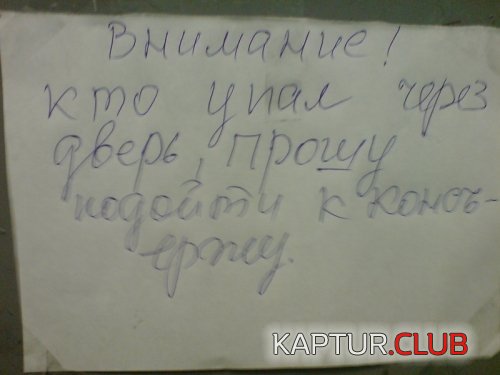 Внимание!
кто упал через
дверь, прошу
подойти к консъ-
ержу.
KAPTUR.CLUB